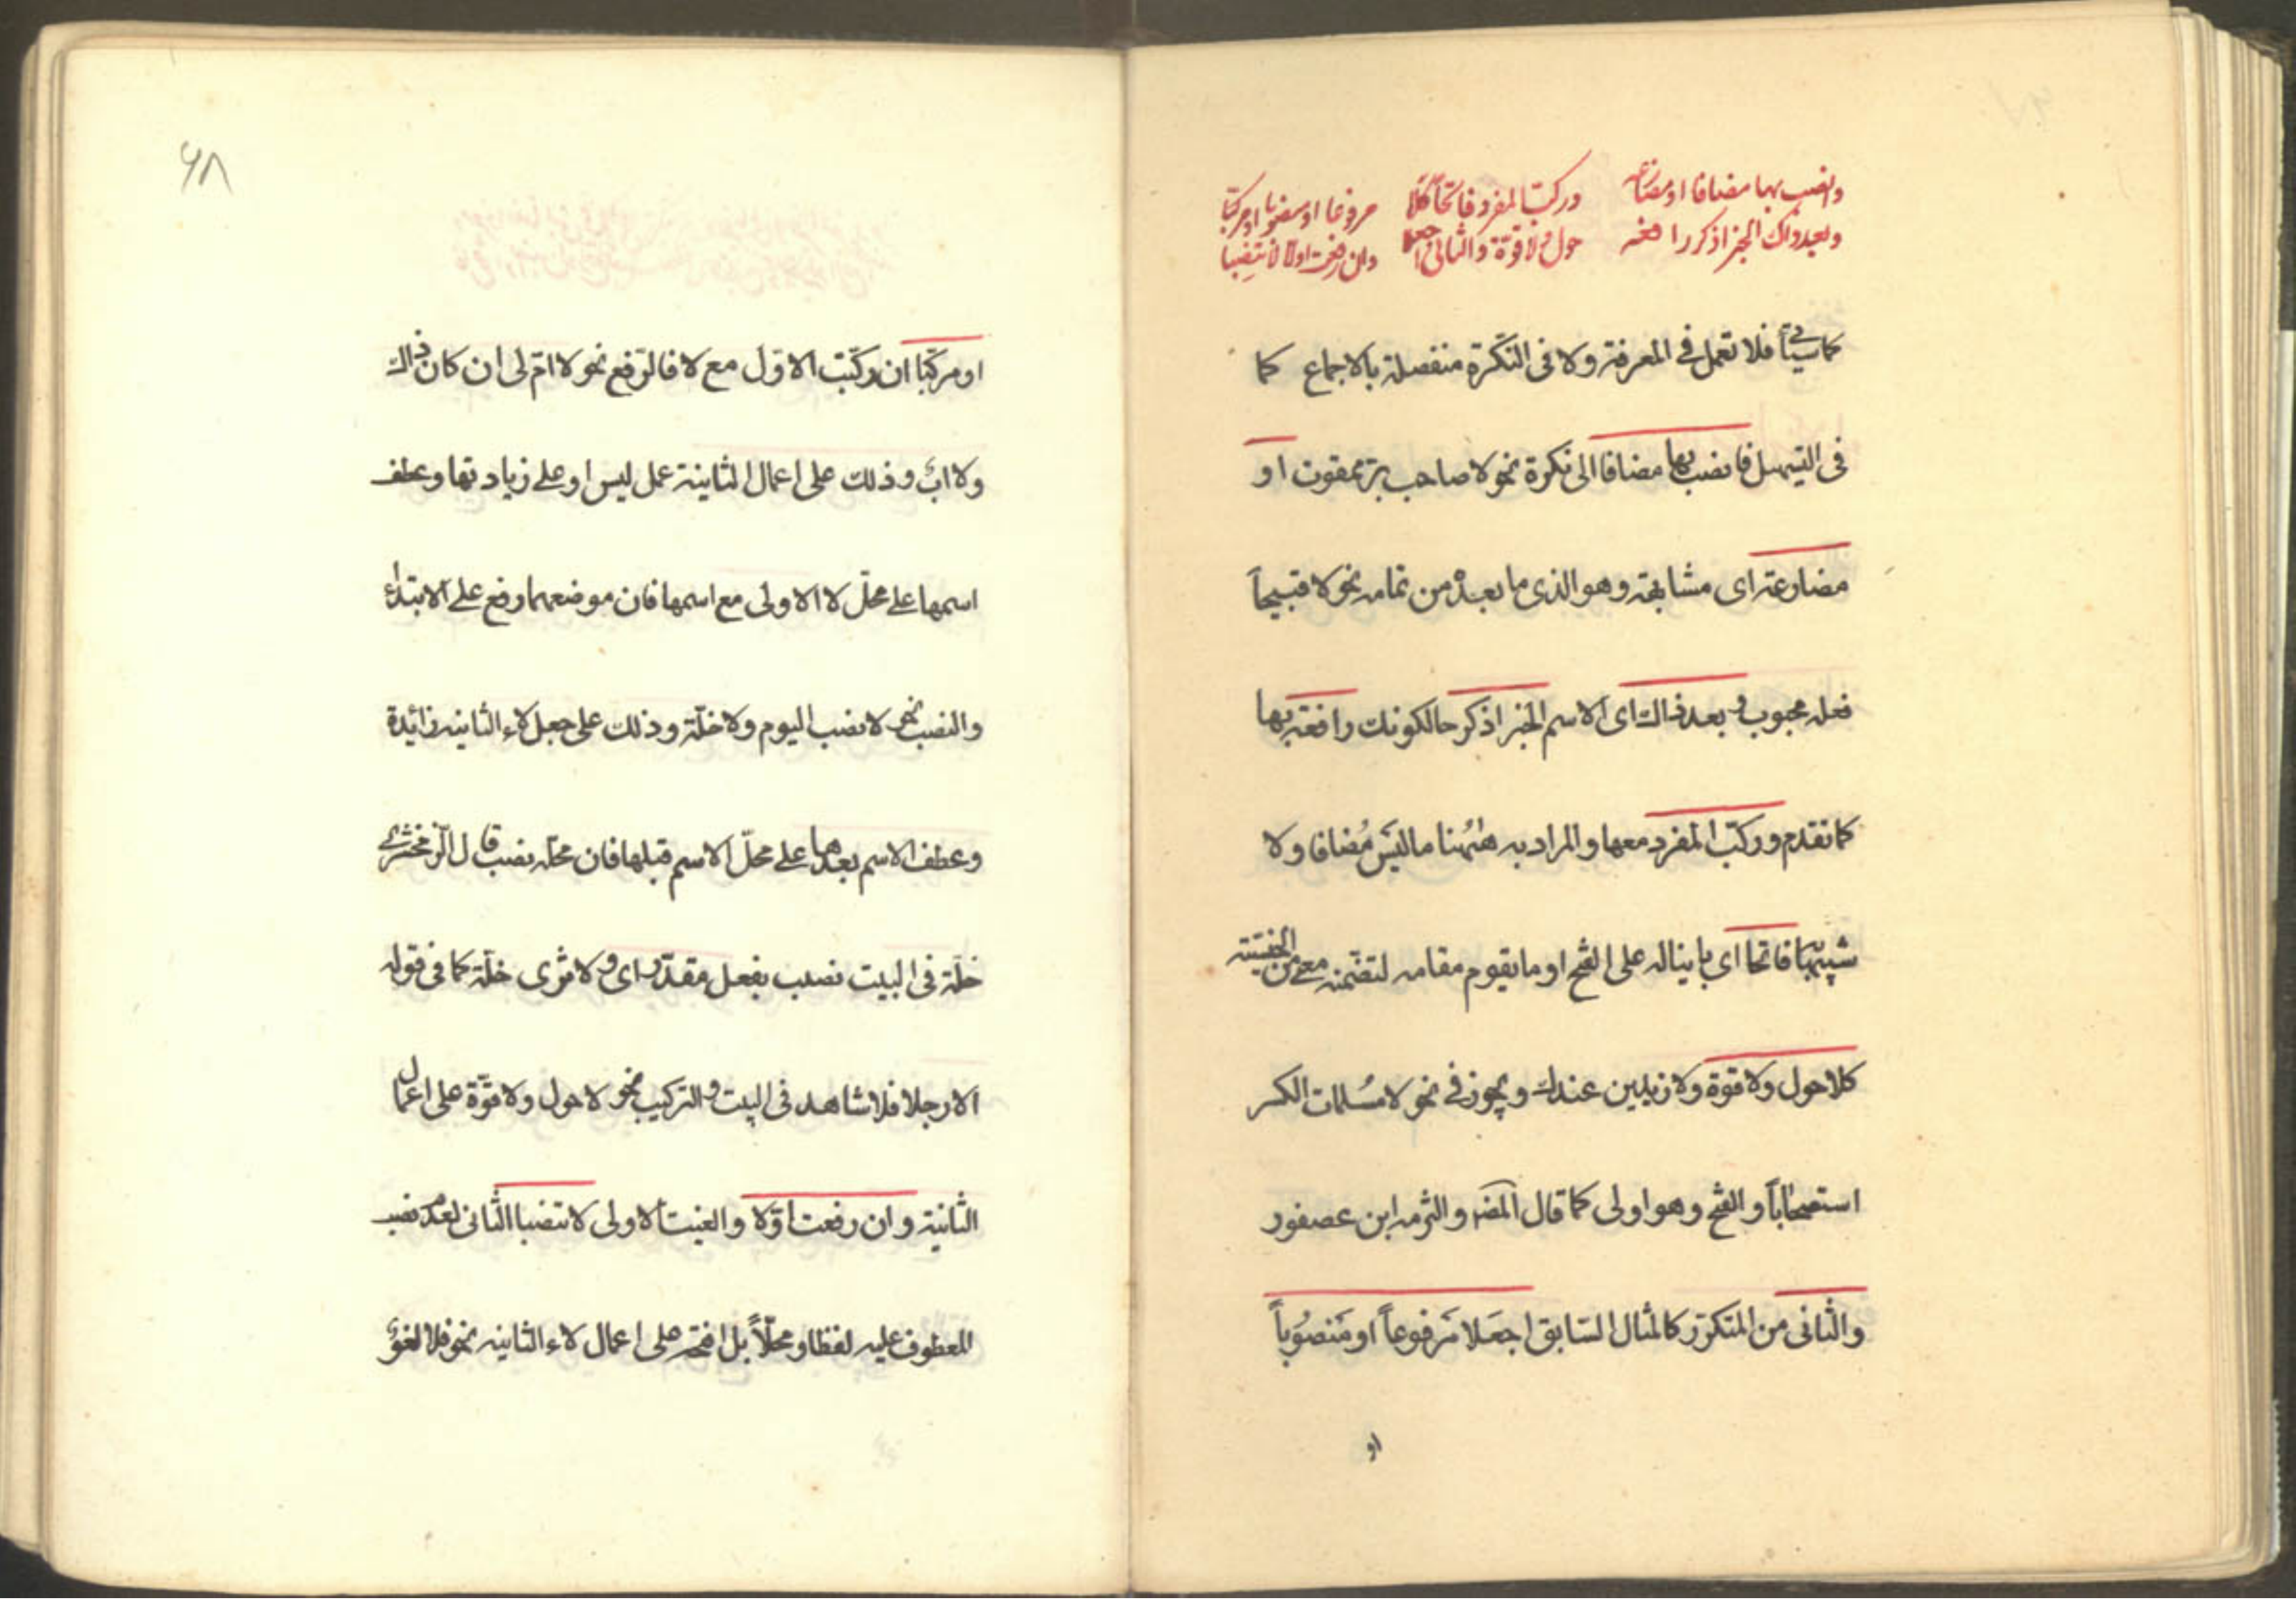 وانصب بها مضافا او مضارعه وركّب المفرد فاتحا كلا مرفوعا او منصوبا او مركبا
وبعد ذاك الخبر اذكر رافعه حول ولا قوّة والثانى اجعلا وان رفعت اولا لا تنصبا
كما سيأتى فلا تعمل فى المعرفة ولا فى النكرة منفصلة بالاجماع كما
فى التسهيل فانصب بها مضافا الى نكرة نحو لا صاحب برّ ممقوت او
مضارعه اى مشابهه وهو الذى ما بعده من تمامه نحو لا قبيحاً
فعله محبوب و بعد ذاك اى الاسم الخبر اذكر حالكونك رافعه بها
كما تقدم وركّب المفرد معها والمراد به هٰهُنا ما ليَس مُضافا ولا
شبيهاً فاتحا اى بانياله على الفتح او ما يقوم مقامه لتضمّنه معنى من الجنسيّة
كلا حول ولا قوة ولا زيدين عندك ويجوز فى نحو لا مُسلمات الكسر
استصحاباً والفتح وهو اولى كما قال المصـ والتزمه ابن عصفور
والثانى من المتكرّر كالمثال السّابق اجعَلا مَرفوعاً او مَنصوُباً
او
۶۸
او مركّبا ان ركّبت الاوّل مع لا فالرّفع نحو لا امّ لى ان كان ذاك
ولا ابٌ وذلك على اعمال الثانية عمل ليس او على زيادتها وعطف
اسمها على محلّ لا الاولى مع اسمها فان موضعهما رفع على الابتداء
والنصب نحو لا نسب اليوم ولا خلّة وذلك على جعل لاء الثانيه زائدة
وعطف الاسم بعدها على محلّ الاسم قبلها فان محلّه نصب قال الزّمخشرى
خلّة فى البيت نصب بفعل مقدّر اى ولا ترى خلّة كما فى قوله
الا رجلا فلا شاهد فى البيت والتركيب نحو لا حول ولا قوّة على اعمال
الثانية وان رفعت اوّلا والغيت الاولى لا تنصبا الثانى لعدم نصب
المعطوف عليه لفظا و محلّاً بل افتحه على اعمال لاء الثانيه نحو فلا لغوٌ